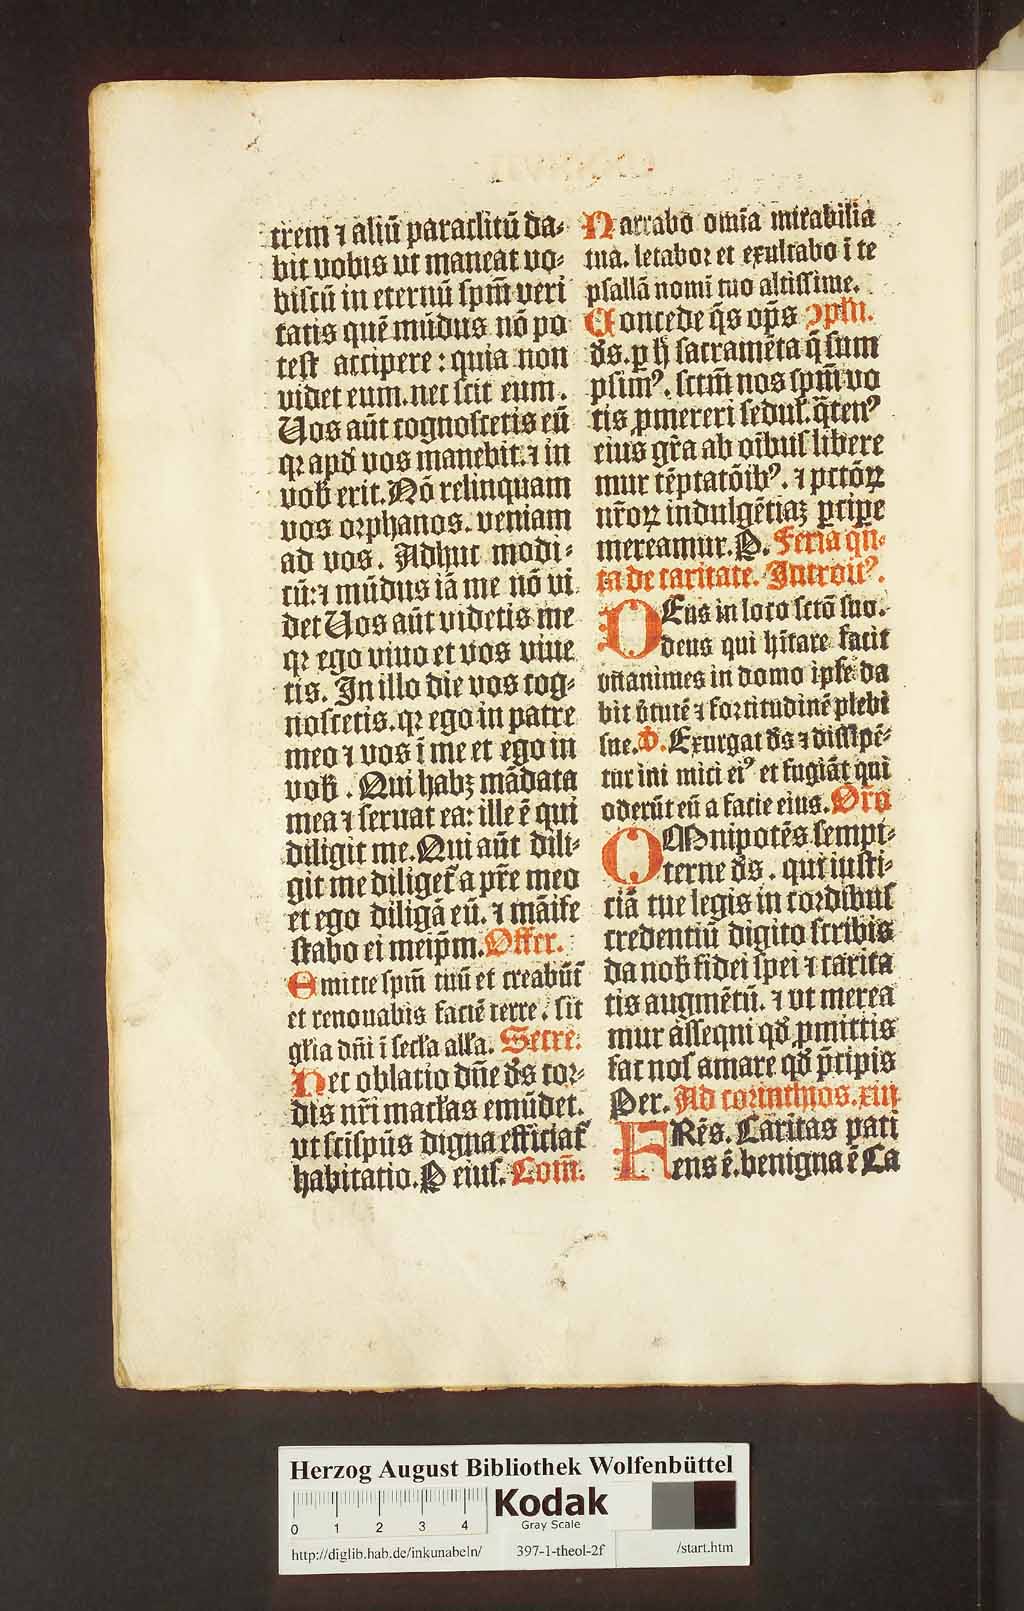 trem ⁊ aliū paraclitū da-
bit vobis vt maneat vo-
biscū in eternū spm̄ veri
tatis quē mūdus nō po
test accipere: quia non
videt eum. nec scit eum.
Uos aūt cognoscetis eū
qꝛ apd̕ vos manebit. ⁊ in
vob̕ erit. Nō relinquam
vos orphanos. veniam
ad vos. Adhuc modi-
cū: ⁊ mūdus iā me nō vi
det Uos aūt videtis me
qꝛ ego viuo et vos viue
tis. In illo die vos cog-
noscetis. qꝛ ego in patre
meo ⁊ vos ī me et ego in
vob̕. Qui habꝫ mādata
mea ⁊ seruat ea: ille ē qui
diligit me. Qui aūt dili-
git me diliget̕ a pr̄e meo
et ego diligā eū. ⁊ māife
stabo ei meip̄m. Offer.
Emitte spm̄ tuū et creabūt̕
et renouabis faciē terre. sit
gl̕ia dn̄i ī secl̕a all̕a. Secre.
Hec oblatio dn̄e d̕s cor-
dis nr̄i macl̕as emūdet.
vt sc̄ispūs digna efficiat̕
habitatio. P eius. Com̄.
Narrabo om̄ia mirabilia
tua. letabor et exultabo ī te
psallā nomī tuo altissime.
Concede q̄s op̄s ꝯpln̄.
d̕s. ꝑ h̕ sacramēta q̄ sum
psimꝰ. sctm̄ nos spm̄ vo
tis ꝓmereri sedul̕. q̄tenꝰ
eius gr̄a ab oībus libere
mur tēptatōibꝰ. ⁊ pctōꝝ
nr̄oꝝ indulgētiaꝫ ꝑcipe
mereamur. P. Feria qn̄-
ta de caritate. Introitꝰ.
DEus in loco sctō suo.
deus qui hītare facit
vnanimes in domo ipse da
bit v̕tutē ⁊ fortitudinē plebi
sue. p̄. Exurgat d̕s ⁊ dissipē-
tur ini mici eiꝰ et fugiāt qui
oderūt eū a facie eius. Oro̅
OMnipotēs sempi-
terne d̕s. qui iusti-
ciā tue legis in cordibus
credentiū digito scribis
da nob̕ fidei spei ⁊ carita
tis augmētū. ⁊ vt merea
mur assequi qd̕ ꝓmittis
fac nos amare qd̕ p̄cipis
Per. Ad corinthios. xiii
FRēs. Caritas pati
ens ē. benigna ē Ca
Herzog August Bibliothek Wolfenbüttel
0 1 2 3 4
Kodak
Gray Scale
http://diglib.hab.de/inkunabeln/ 397-1-theol-2f /start.htm